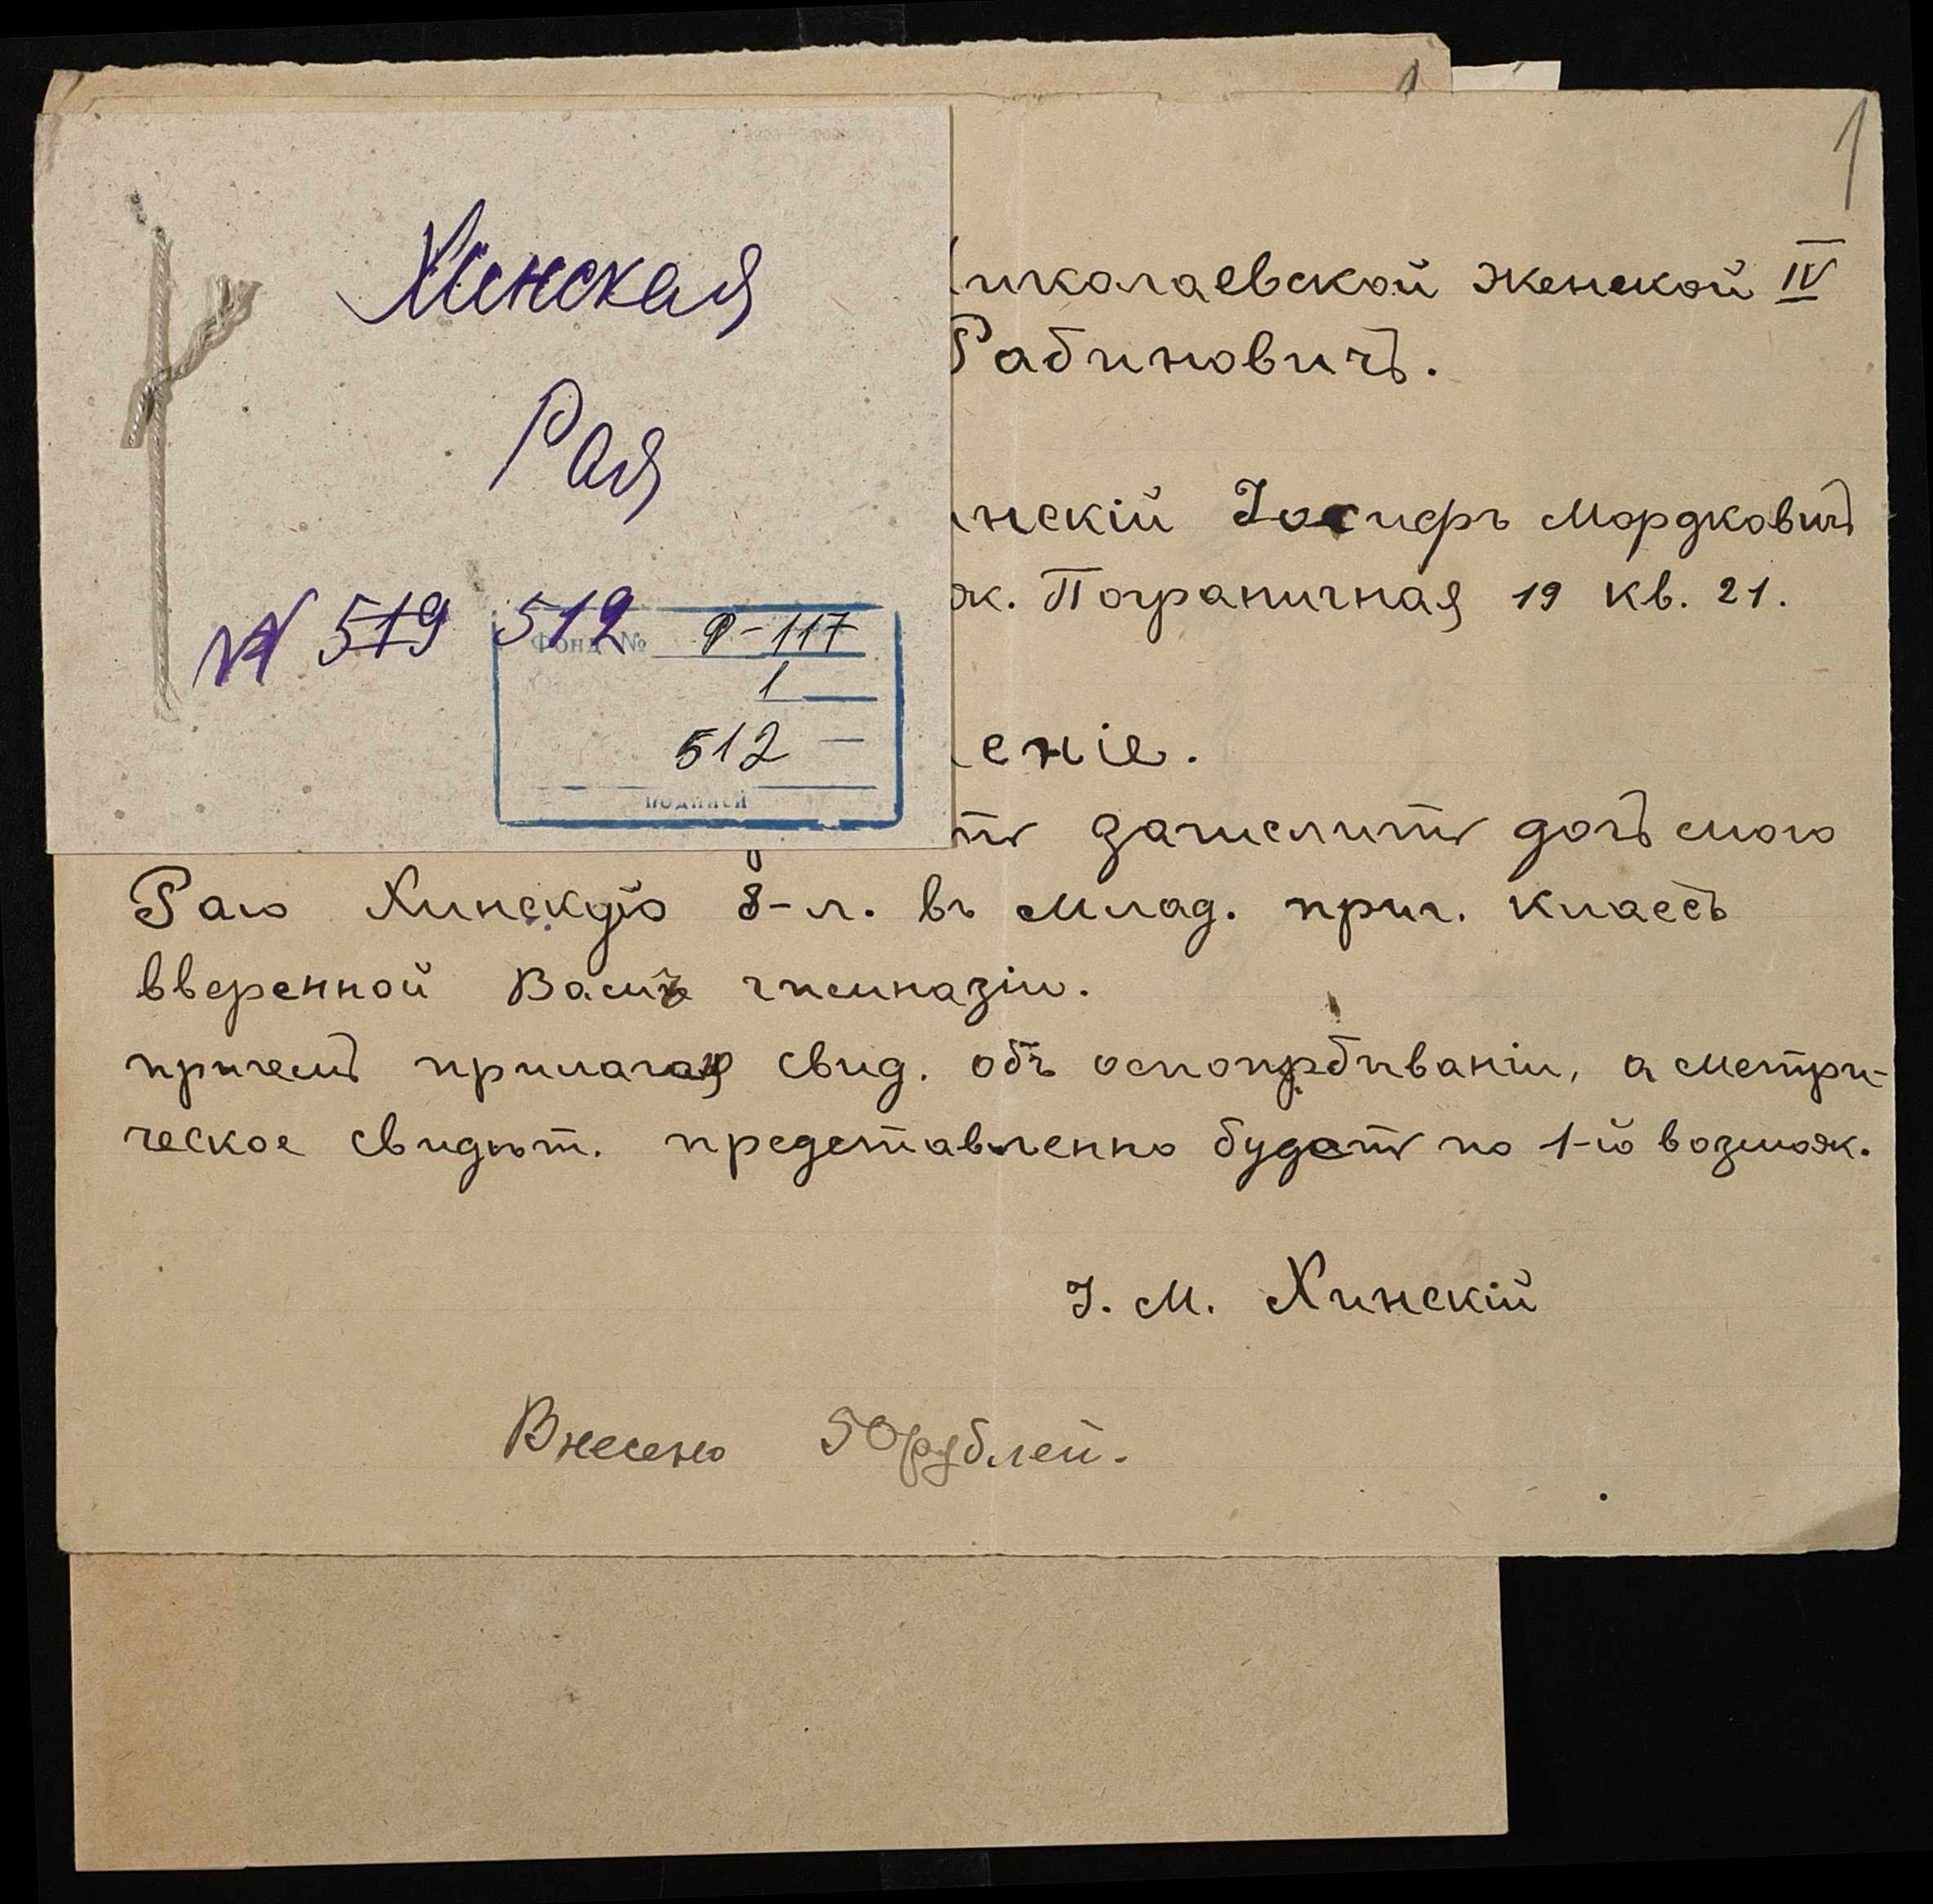 Хинская
Рая
№ 519 512
Фонд № Р-117
1
512
1
1
николаевской женской IV
Рабиновичъ.
нскій Іосифъ Мордковичъ
ж. Пограничная 19 кв. 21.
еніе.
ть зачислить дочь мою
Раю Хинскую 8-л. въ млад. приг. классъ
вверенной Вамъ гимназіи.
причемъ прилагаю свид. объ оспопрбиваніи, а метри-
ческое свидѣт. представленно будетъ по 1-й возмож.
І. М. Хинскій
Внесено 50 рублей.